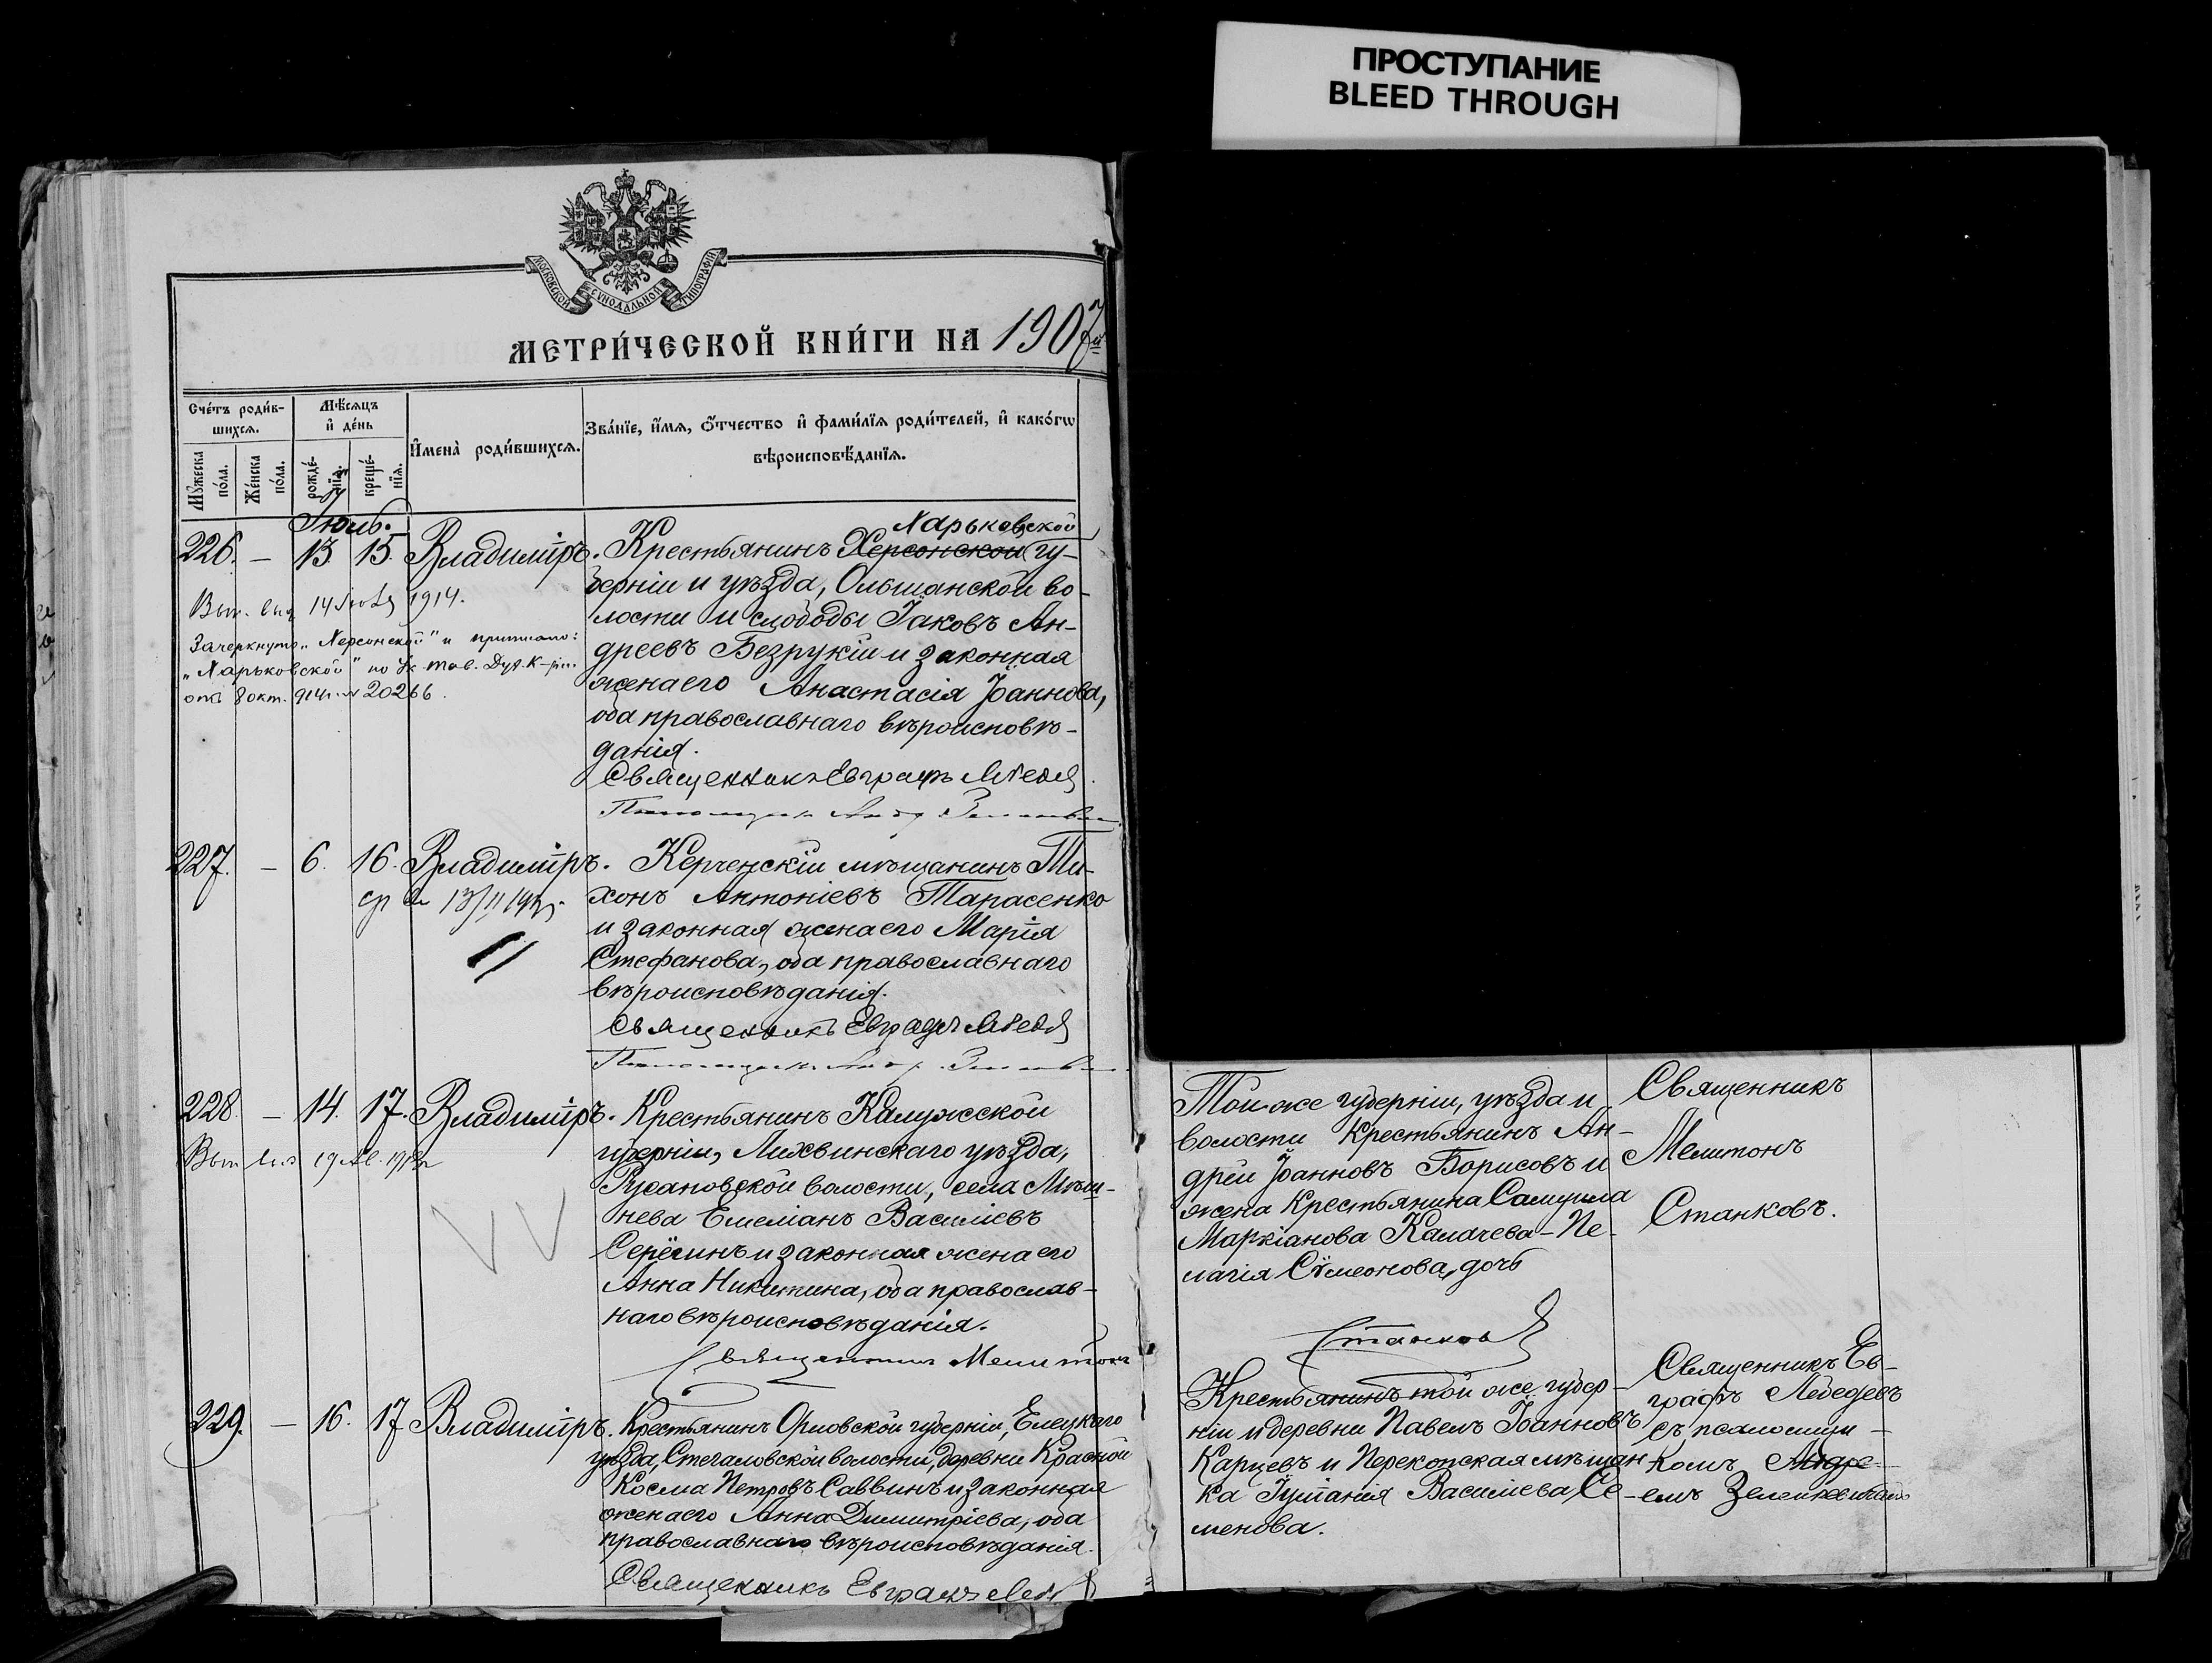 ПРОСТУПАНИЕ
BLEED THROUGH
МОСКОВСКОЙ СѴНОДАЛЬНОЙ ТИПОГРАФІИ
МЕТРИ́ЧЕСКОЙ КНИ́ГИ НА 1907
Сче́тъ роди́в-
шихсѧ.
Мꙋ́жеска
по́ла.
Же́нска
по́ла.
Мѣ́сѧцъ
и҆ де́нь
рожде́-
нїѧ.
креще́-
нїѧ.
И҆мена̀ роди́вшихсѧ.
Зва́нїе, и҆́мѧ, ѻ҆́тчество и҆ фами́лїѧ роди́телей, и҆ како́гѡ
вѣроисповѣ́данїѧ.
Іюль.
226. — 13. 15. Владиміръ.
Харьковской
Крестьянинъ Херсонской гу-
берніи и уѣзда, Ольшанской во-
лости и слободы Іаковъ Ан-
дреевъ Безрукій и законная
жена его Анастасія Іоаннова,
оба православнаго вѣроисповѣ-
данія.
Священникъ Евграфъ Лебед
14 1914.
Зачеркнуто „Херсонской" и приписано:
„Харьковской" по
отъ 8 окт. 914 г. № 20266.
227. — 6. 16. Владиміръ.
Керченскій мѣщанинъ Ти-
хонъ Антоніевъ Тарасенко
и законная жена его Марія
Стефанова, оба православнаго
вѣроисповѣданія.
Священникъ Евграфъ Лебед
228. — 14. 17. Владиміръ.
Крестьянинъ Калужской
губерніи, Лихвинскаго уѣзда,
Русановской волости, села Мѣш-
нева Емеліанъ Василіевъ
Серёгинъ и законная жена его
Анна Никитина, оба православ-
наго вѣроисповѣданія.
Священникъ Мелитонъ
229. — 16. 17 Владиміръ.
Крестьянинъ Орловской губерніи, Елецкаго
уѣзда, Стегаловской волости, деревни Красной
Косма Петровъ Саввинъ и законная
жена его Анна Димитріева, оба
православнаго вѣроисповѣданія.
Священникъ Евграфъ Леб
Той же губерніи, уѣзда и
волости Крестьянинъ Ан-
дрей Іоанновъ Борисовъ и
жена Крестьянина Самуила
Маркіанова Калачева - Пе-
лагія Сѵмеонова, дочь
Станковъ
Священникъ
Мелитонъ
Станковъ.
Крестьянинъ той же губер-
ніи и деревни Павелъ Іоанновъ
Карцевъ и Перекопская мѣщан-
ка Іуліанія Василіева Се-
менова.
Священникъ Ев-
графъ Лебедевъ
съ псаломщи-
комъ Андре-
емъ